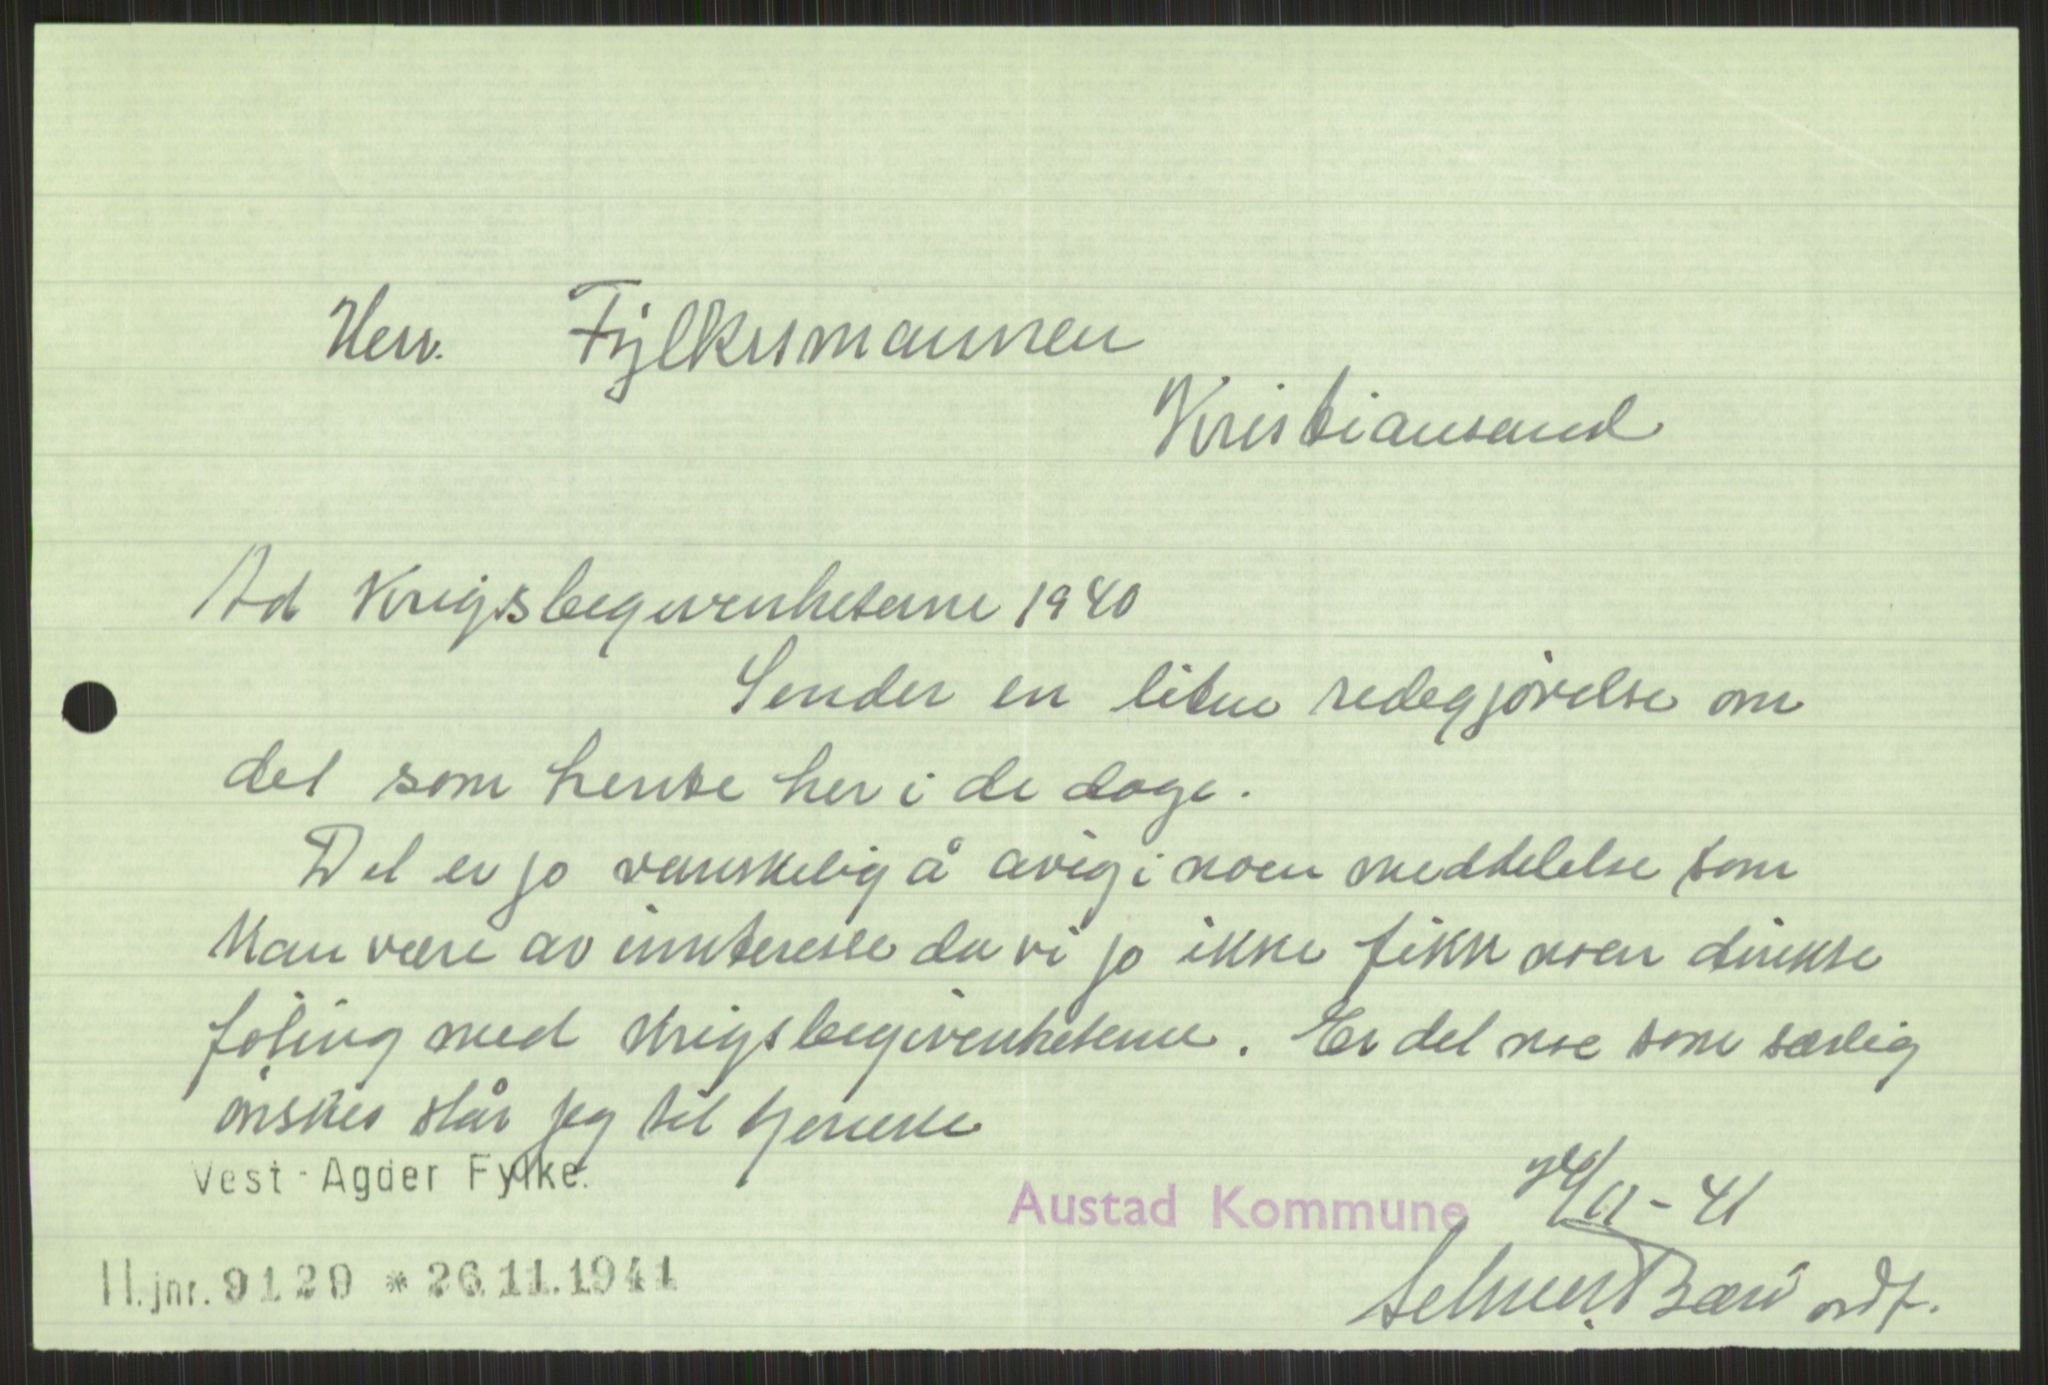 Herr. Fylkesmannen
Kristiansand
Ad Krigsbegivenheterne 1940
Sender en liten redegjørelse om
det som hente her i de dage.
Det er jo vanskelig å avgi noen meddelelse som
kan være av innteresse da vi jo ikke fikk noen direkte
føling med krigsbegivenhetene. Er det noe som særlig
ønskes står jeg til tjeneste
Vest-Agder Fylke.
Austad Kommune /11-41
II. jnr. 9129 * 26.11.1941
ordf.